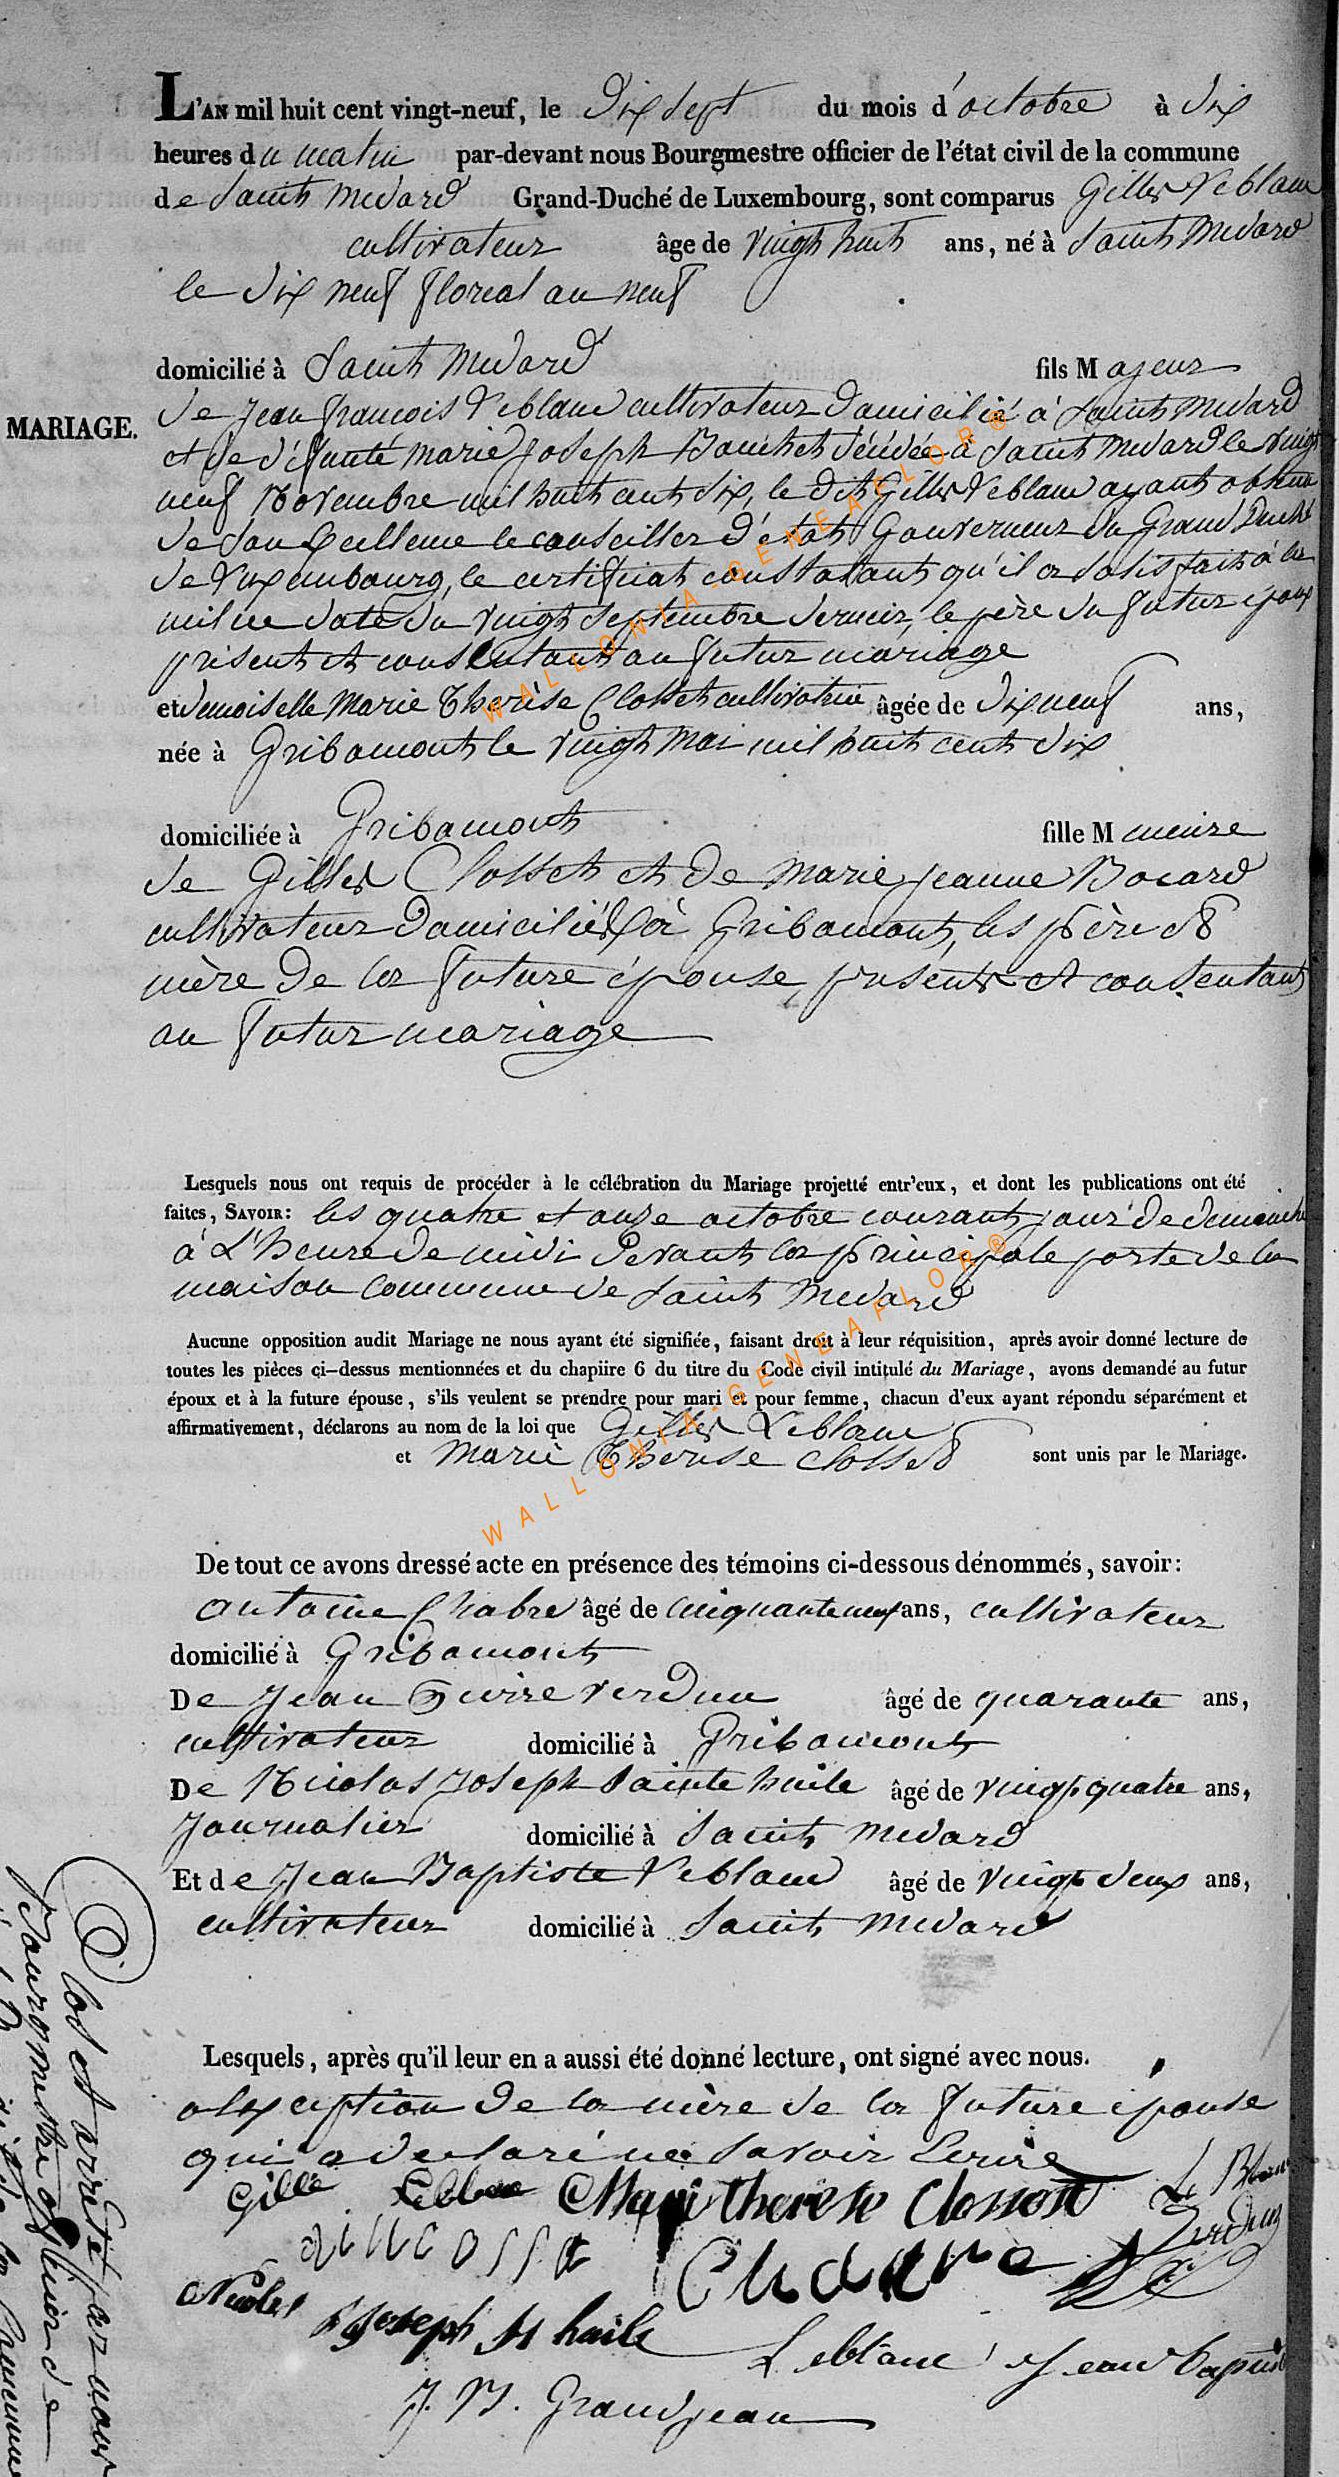 L'AN mil huit cent vingt-neuf, le Dix Sept du mois d'octobre à Dix
heures du matin par-devant nous Bourgmestre officier de l'état civil de la commune
de Saint Medard Grand-Duché de Luxembourg, sont comparus Gilles Leblanc
cultivateur âge de vingt huit ans, né à Saint Medard
le dix neuf floreal an neuf
domicilié à Saint Medard fils Majeur
MARIAGE.
de Jean francois Leblanc cultivateur Domicilié à Saint Medard
et de défunte marie Joseph Bouchet décédée à Saint Medard le vingt
neuf Novembre mil huit cent dix, le dit Gilles Leblanc ayant obtenu
de son Excellence le conseiller d'état Gouverneur du Grand Duché
de Luxembourg, le certificat constatant qu'il a satisfait à la
milice date du vingt Septembre dernier, le père du futur époux
présent et consentant au futur mariage
et demoiselle Marie Therèse Closset cultivatrice âgée de Dix neuf ans,
née à Gribomont le vingt Mai mil huit cent dix
domiciliée à Gribomont fille M ineure
de Gilles Closset et De Marie Jeanne Bocard
cultivateur Domiciliés à Gribomont, les père et
mère De la future épouse, présents et consentant
au futur mariage
Lesquels nous ont requis de procéder à le célébration du Mariage projetté entr'eux, et dont les publications ont été
faites, SAVOIR: les quatre et onze octobre courant jour de demanche
à L'heure De midi Devant la principale porte de la
maison Commune de Saint Medard
Aucune opposition audit Mariage ne nous ayant été signifiée, faisant droit à leur réquisition, après avoir donné lecture de
toutes les pièces ci-dessus mentionnées et du chapiire 6 du titre du Code civil intitulé du Mariage, avons demandé au futur
époux et à la future épouse, s'ils veulent se prendre pour mari et pour femme, chacun d'eux ayant répondu séparément et
affirmativement, déclarons au nom de la loi que Gilles Leblanc
et Marie Therese Closset sont unis par le Mariage.
De tout ce avons dressé acte en présence des témoins ci-dessous dénommés, savoir:
antoine Chabre âgé de cinquante neuf ans, cultivateur
domicilié à Gribomont
De Jean verdun âgé de quarante ans,
cultivateur domicilié à Gribomont
De Nicolas Joseph Sainte huile âgé de vingt quatre ans,
Journalier domicilié à Saint Medard
Et de Jean Baptiste Leblanc âgé de vingt deux ans,
cultivateur domicilié à Saint Medard
Lesquels, après qu'il leur en a aussi été donné lecture, ont signé avec nous.
a lexception De la mère de la future épouse
qui a declaré ne savoir Ecrire
Gille Leblanc Mari therese Closset Le Blanc
Verdun
Nicolas Joseph St huile
Leblanc Jean bapiste
J. B. Grandjean
Clos et arrêté par nous
Bourgmestre officier de
WALLONIA-GENEAFLOR®
WALLONIA-GENEAFLOR®